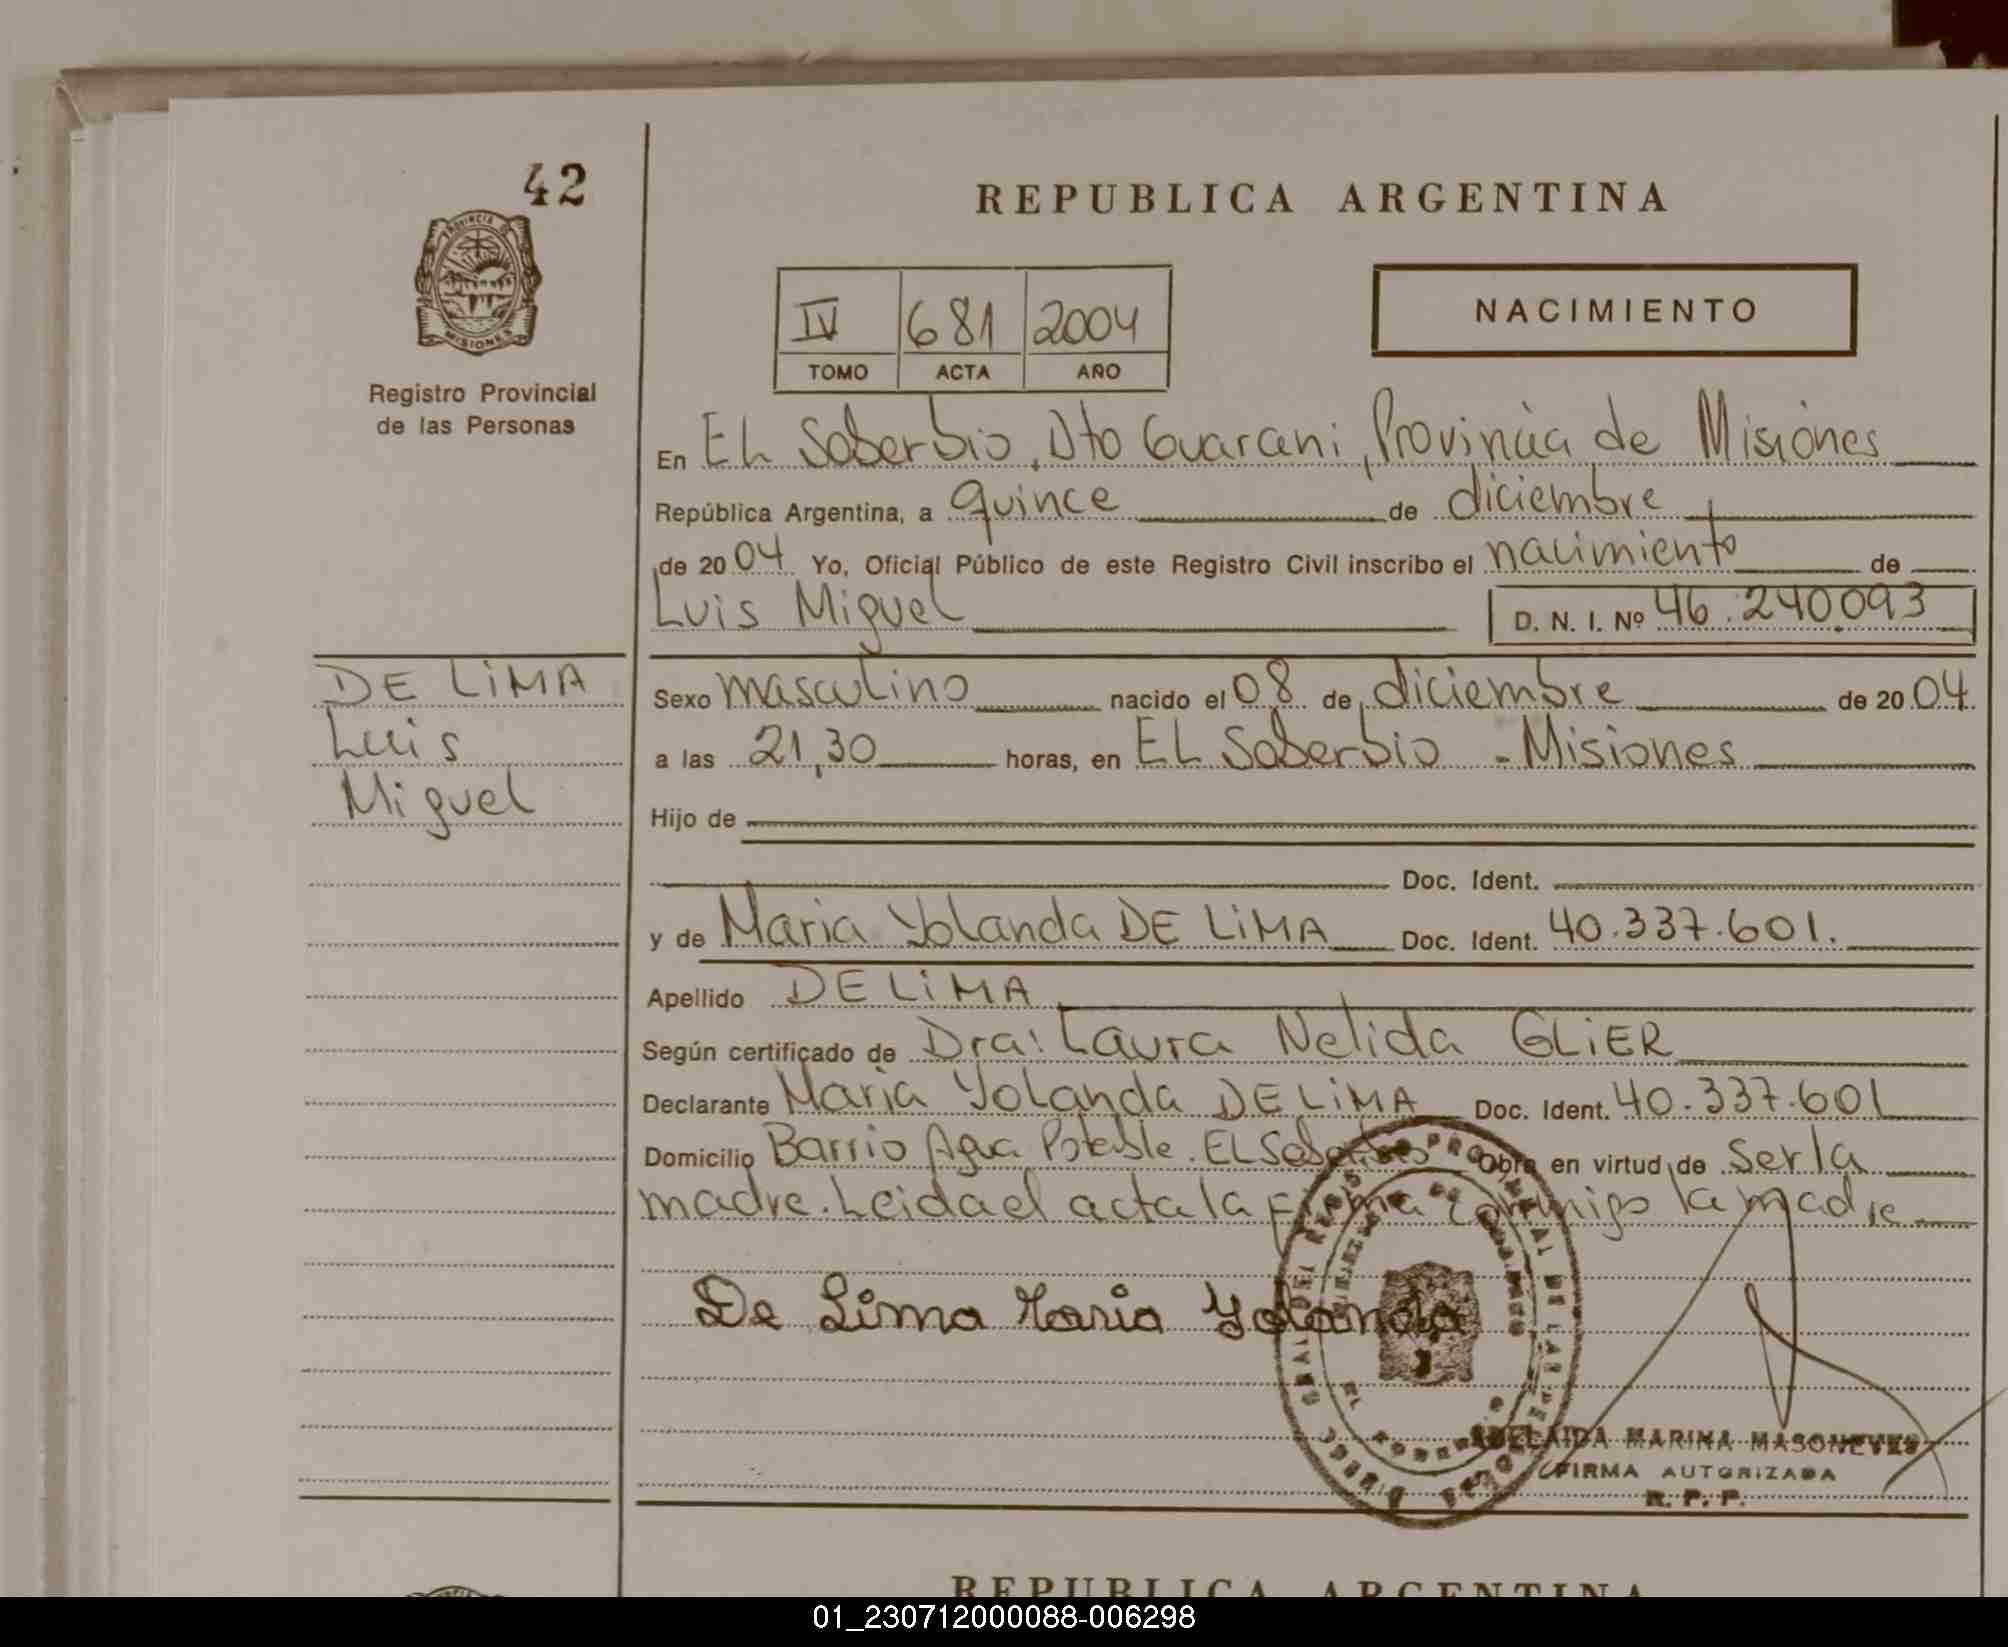 42
PROVINCIA
MISIONES
Registro Provincial
de las Personas
REPUBLICA ARGENTINA
IV 681 2004
TOMO ACTA AÑO
NACIMIENTO
En EL Soberbio, Dto Guarani, Provincia de Misiones
República Argentina, a quince de diciembre
de 2004 Yo, Oficial Público de este Registro Civil inscribo el nacimiento de
Luis Miguel D. N. I. Nº 46.240.093
DE LiMA
Luis
Miguel
Sexo masculino nacido el 08 de diciembre de 2004
a las 21,30 horas, en EL Soberbio - Misiones
Hijo de
Doc. Ident.
y de Maria Yolanda DE LiMA Doc. Ident. 40.337.601.
Apellido DE LiMA
Según certificado de Dra: Laura Nelida GLiER
Declarante Maria Yolanda DE LiMA Doc. Ident. 40.337.601
Domicilio Barrio Agua Potable. EL Soberbio Obra en virtud de ser la
madre. Leida el acta la firma conmigo la madre
De Lima Maria Yolanda
ADELAIDA MARINA MASONEVES
FIRMA AUTORIZADA
R. P. P.
REPUBLICA ARGENTINA
01_230712000088-006298